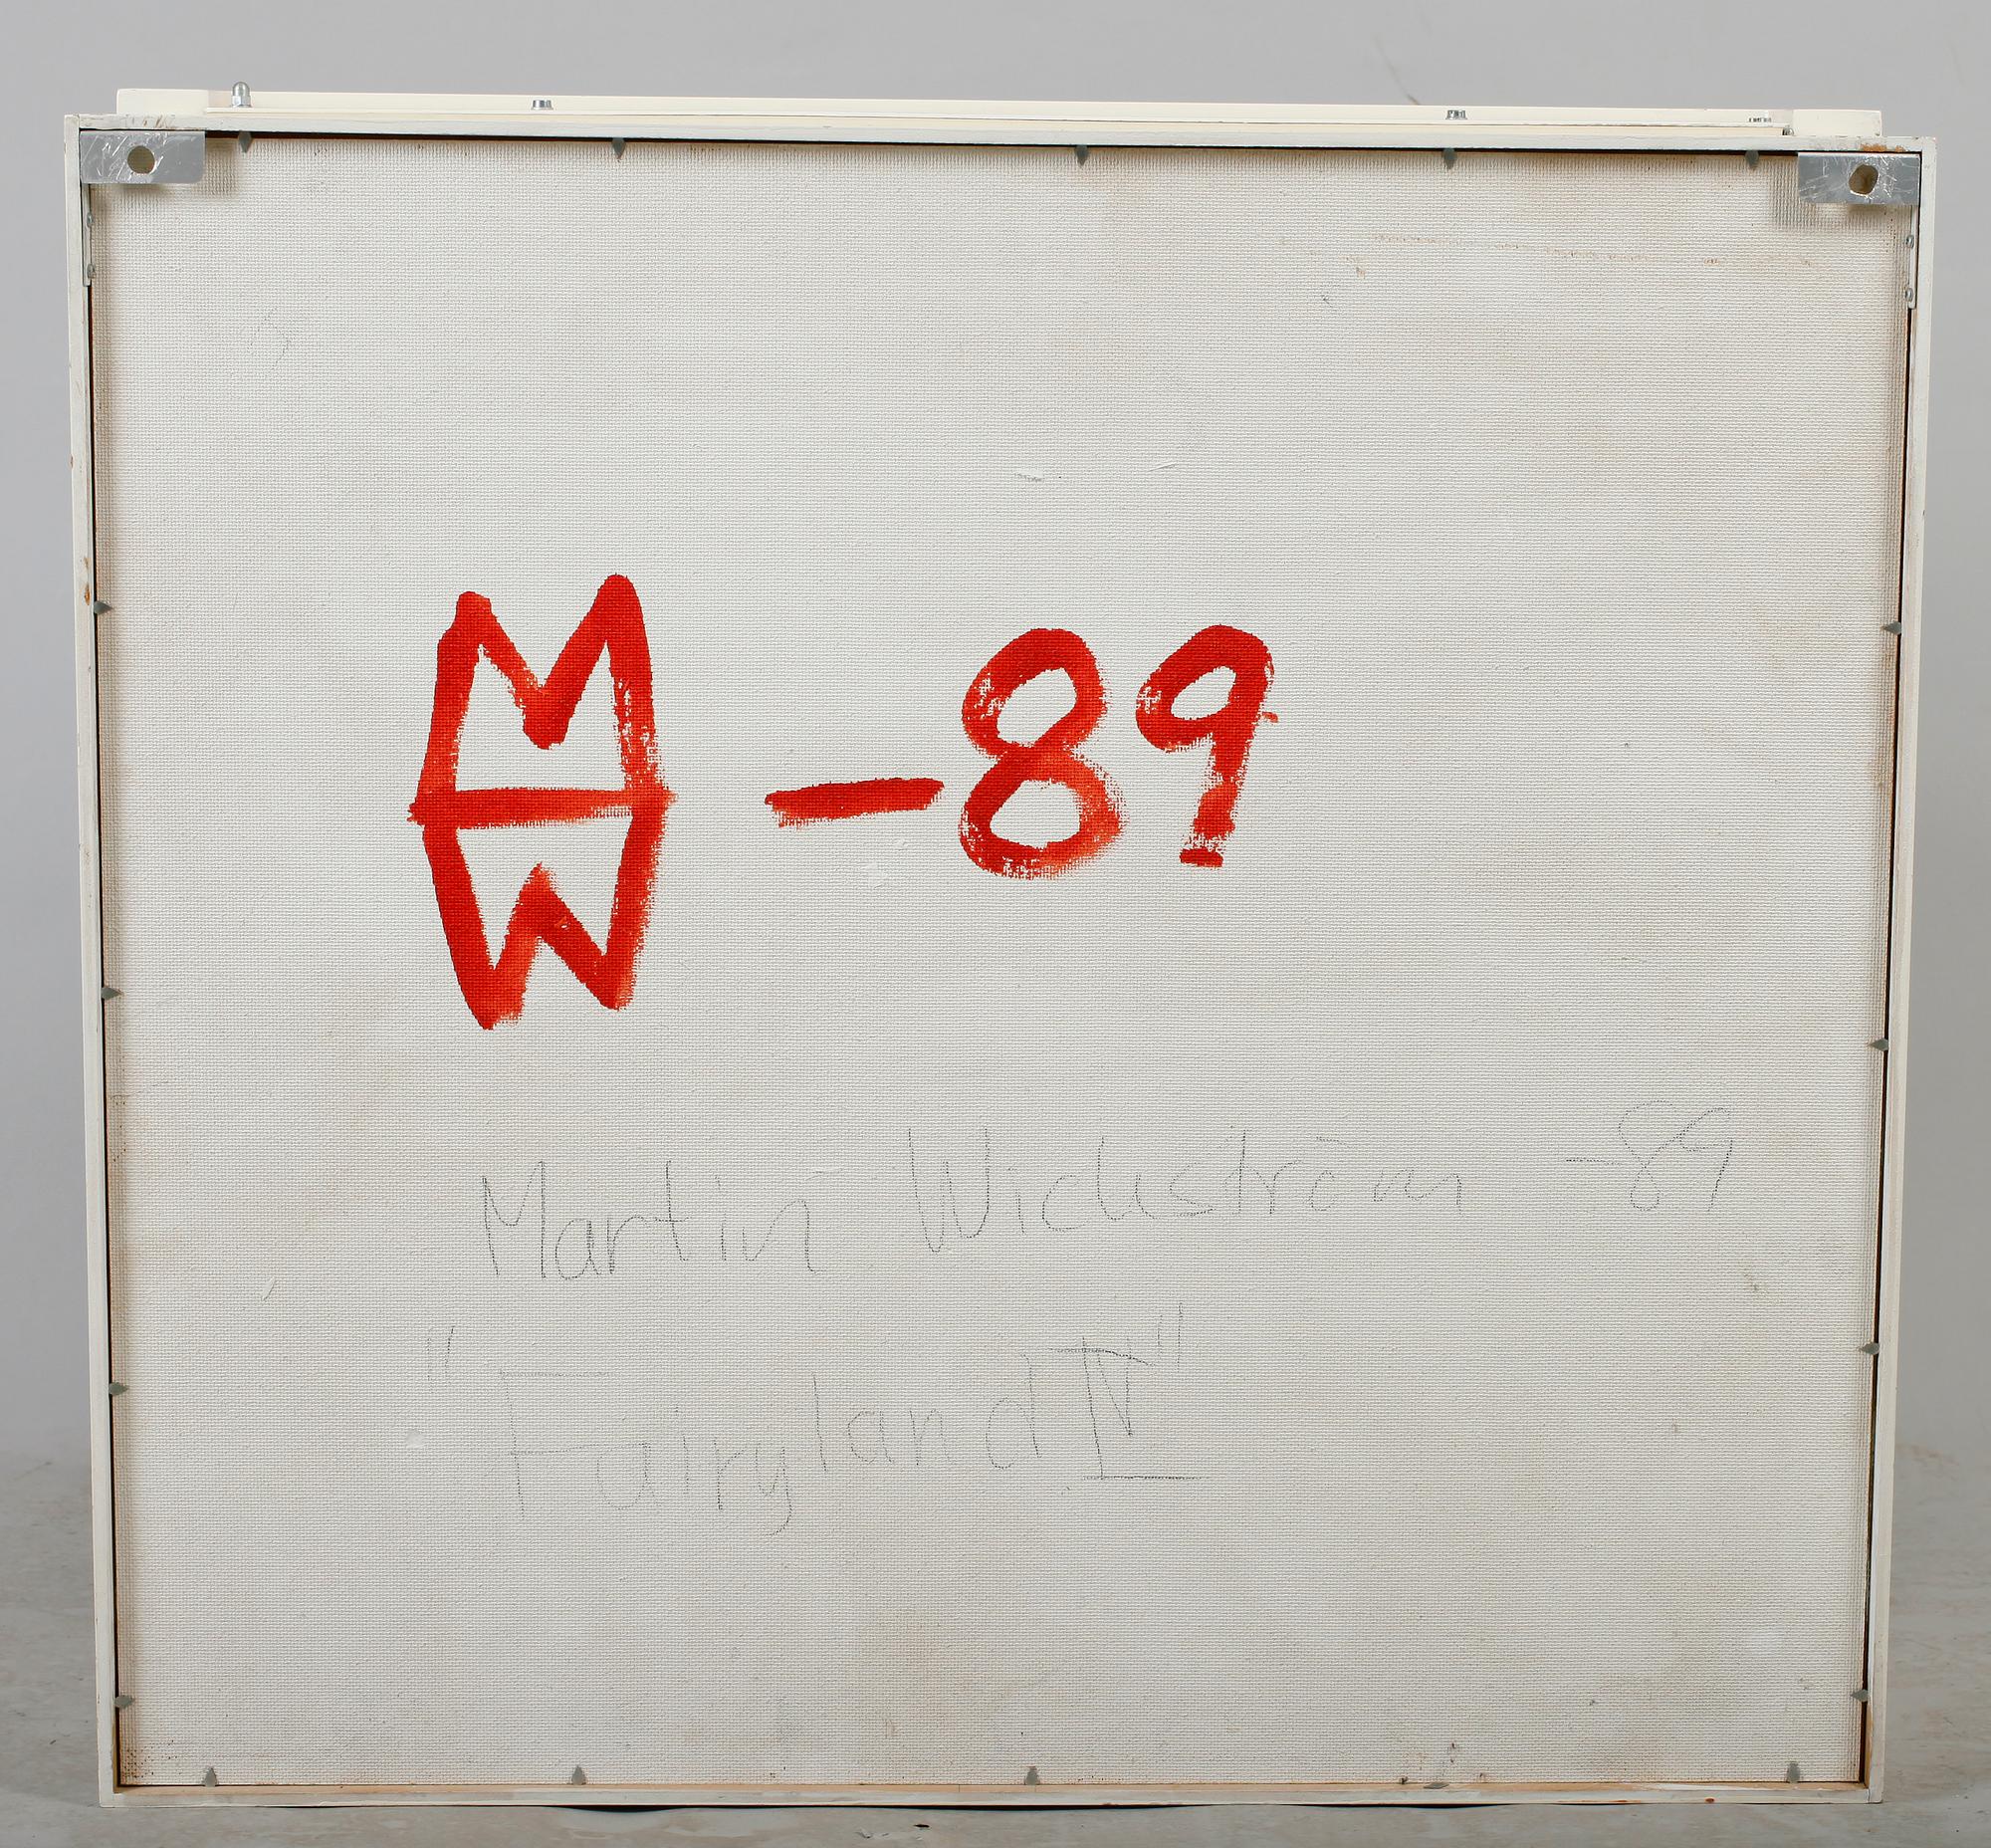 MW -89
Martin Wickström -89
"Fairyland IV"